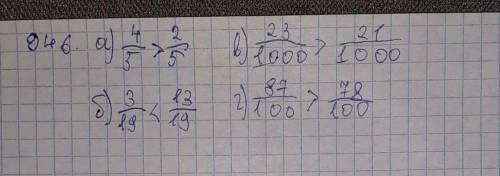 946. а) 4/5 > 2/5 в) 23/1000 > 21/1000
б) 3/19 < 13/19 г) 87/100 > 78/100